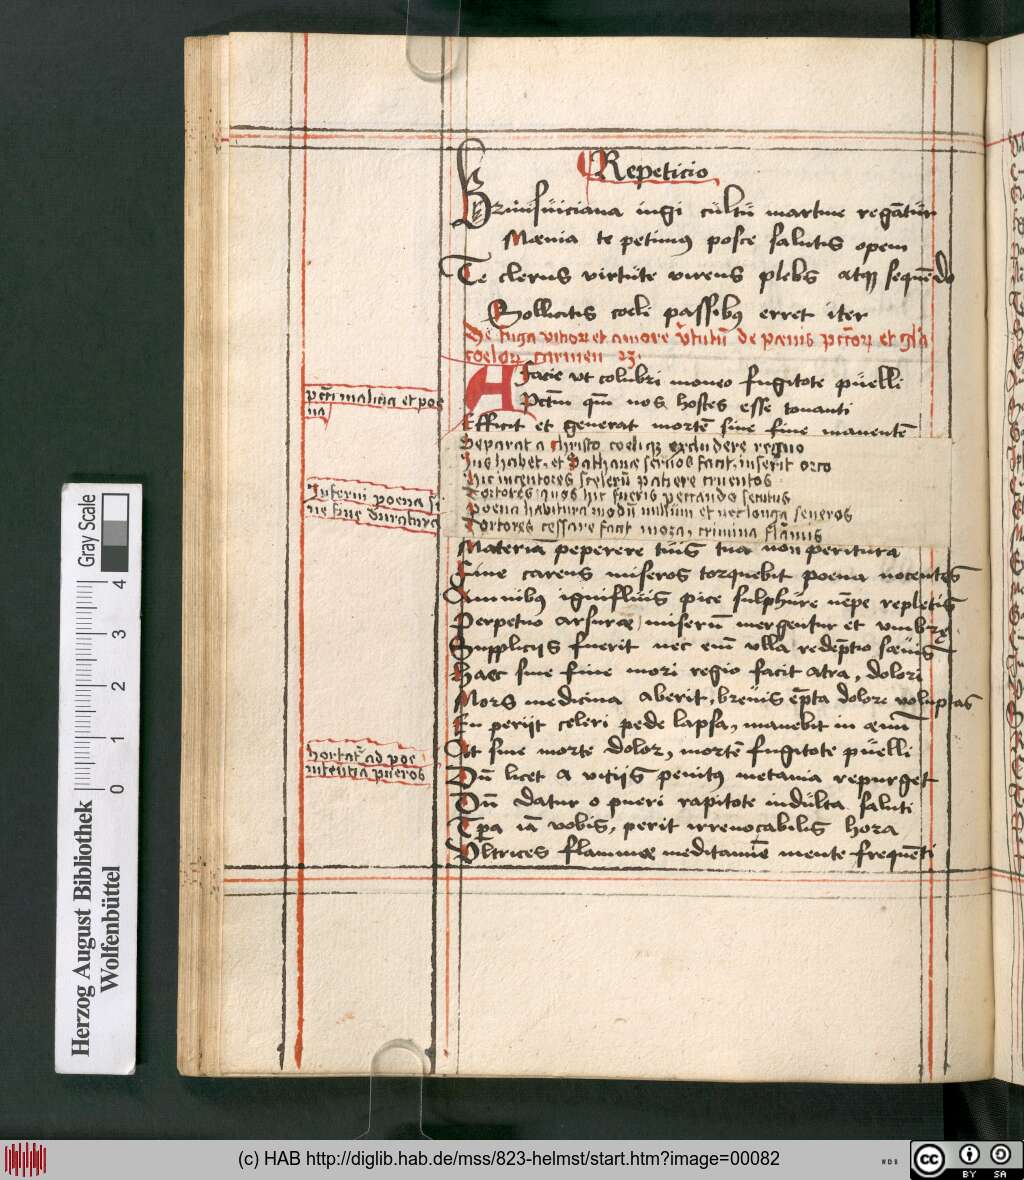 Repeticio
Brunsuiciana iugi cultu martine regat̄ur
Mœnia te petimus posce salutis opem
Te clerus virtute virens plebs atqȝ sequēdo
Sollicitis coeli passibus erret iter
De fuga vitiorꝝ et amore v̄tutū de pœnis pctōrꝝ et glīa
coelorꝝ carmen 23.
A facie vt colubri moneo fugitote puelli
Pctm̄ qm̄ nos hostes esse tonanti
Efficit et generat mortē sine fine manentē
Separat a christo coeliqȝ excludere regno
Ius habet, et Sathanæ seruos facit, inserit orco
Hic incentores scelerū patiere cruentos
Tortores quos hic fueris peccando secutus
Poena habitura modū nullum et nec longa seueros
Tortores cessare facit mora, crimina flāmis
Materiā peperere tuis tua non peritura
Fine carens miseros torquebit poena nocentes
Amnibus ignifluis pice sulphure nēpe repletis
Perpetuo arsuræ, miserū mergentur et vmbræ
Supplicijs fuerit nec eim̄ vlla redēptio sæuis
Haec sine fine mori regio facit atra, dolori
Mors medicina aberit, breuis ēpta dolore voluptas
En perijt celeri pede lapsa, manebit in æuuū
At sine morte dolor, mortē fugitote puelli
Dū licet a vitijs penitus metania repurget
Dū datur o pueri rapitote indulta saluti
Tpa iā vobis, perit irreuocabilis hora
Vltrices flammæ meditamīe mente frequēti
pcti malicia et poe
na
Inferni poena si
ne fine duratura
hortat̄ ad poe
nitentia pueros
Gray Scale
4
3
2
1
0
Herzog August Bibliothek
Wolfenbüttel
(c) HAB http://diglib.hab.de/mss/823-helmst/start.htm?image=00082
WDB
cc
BY SA